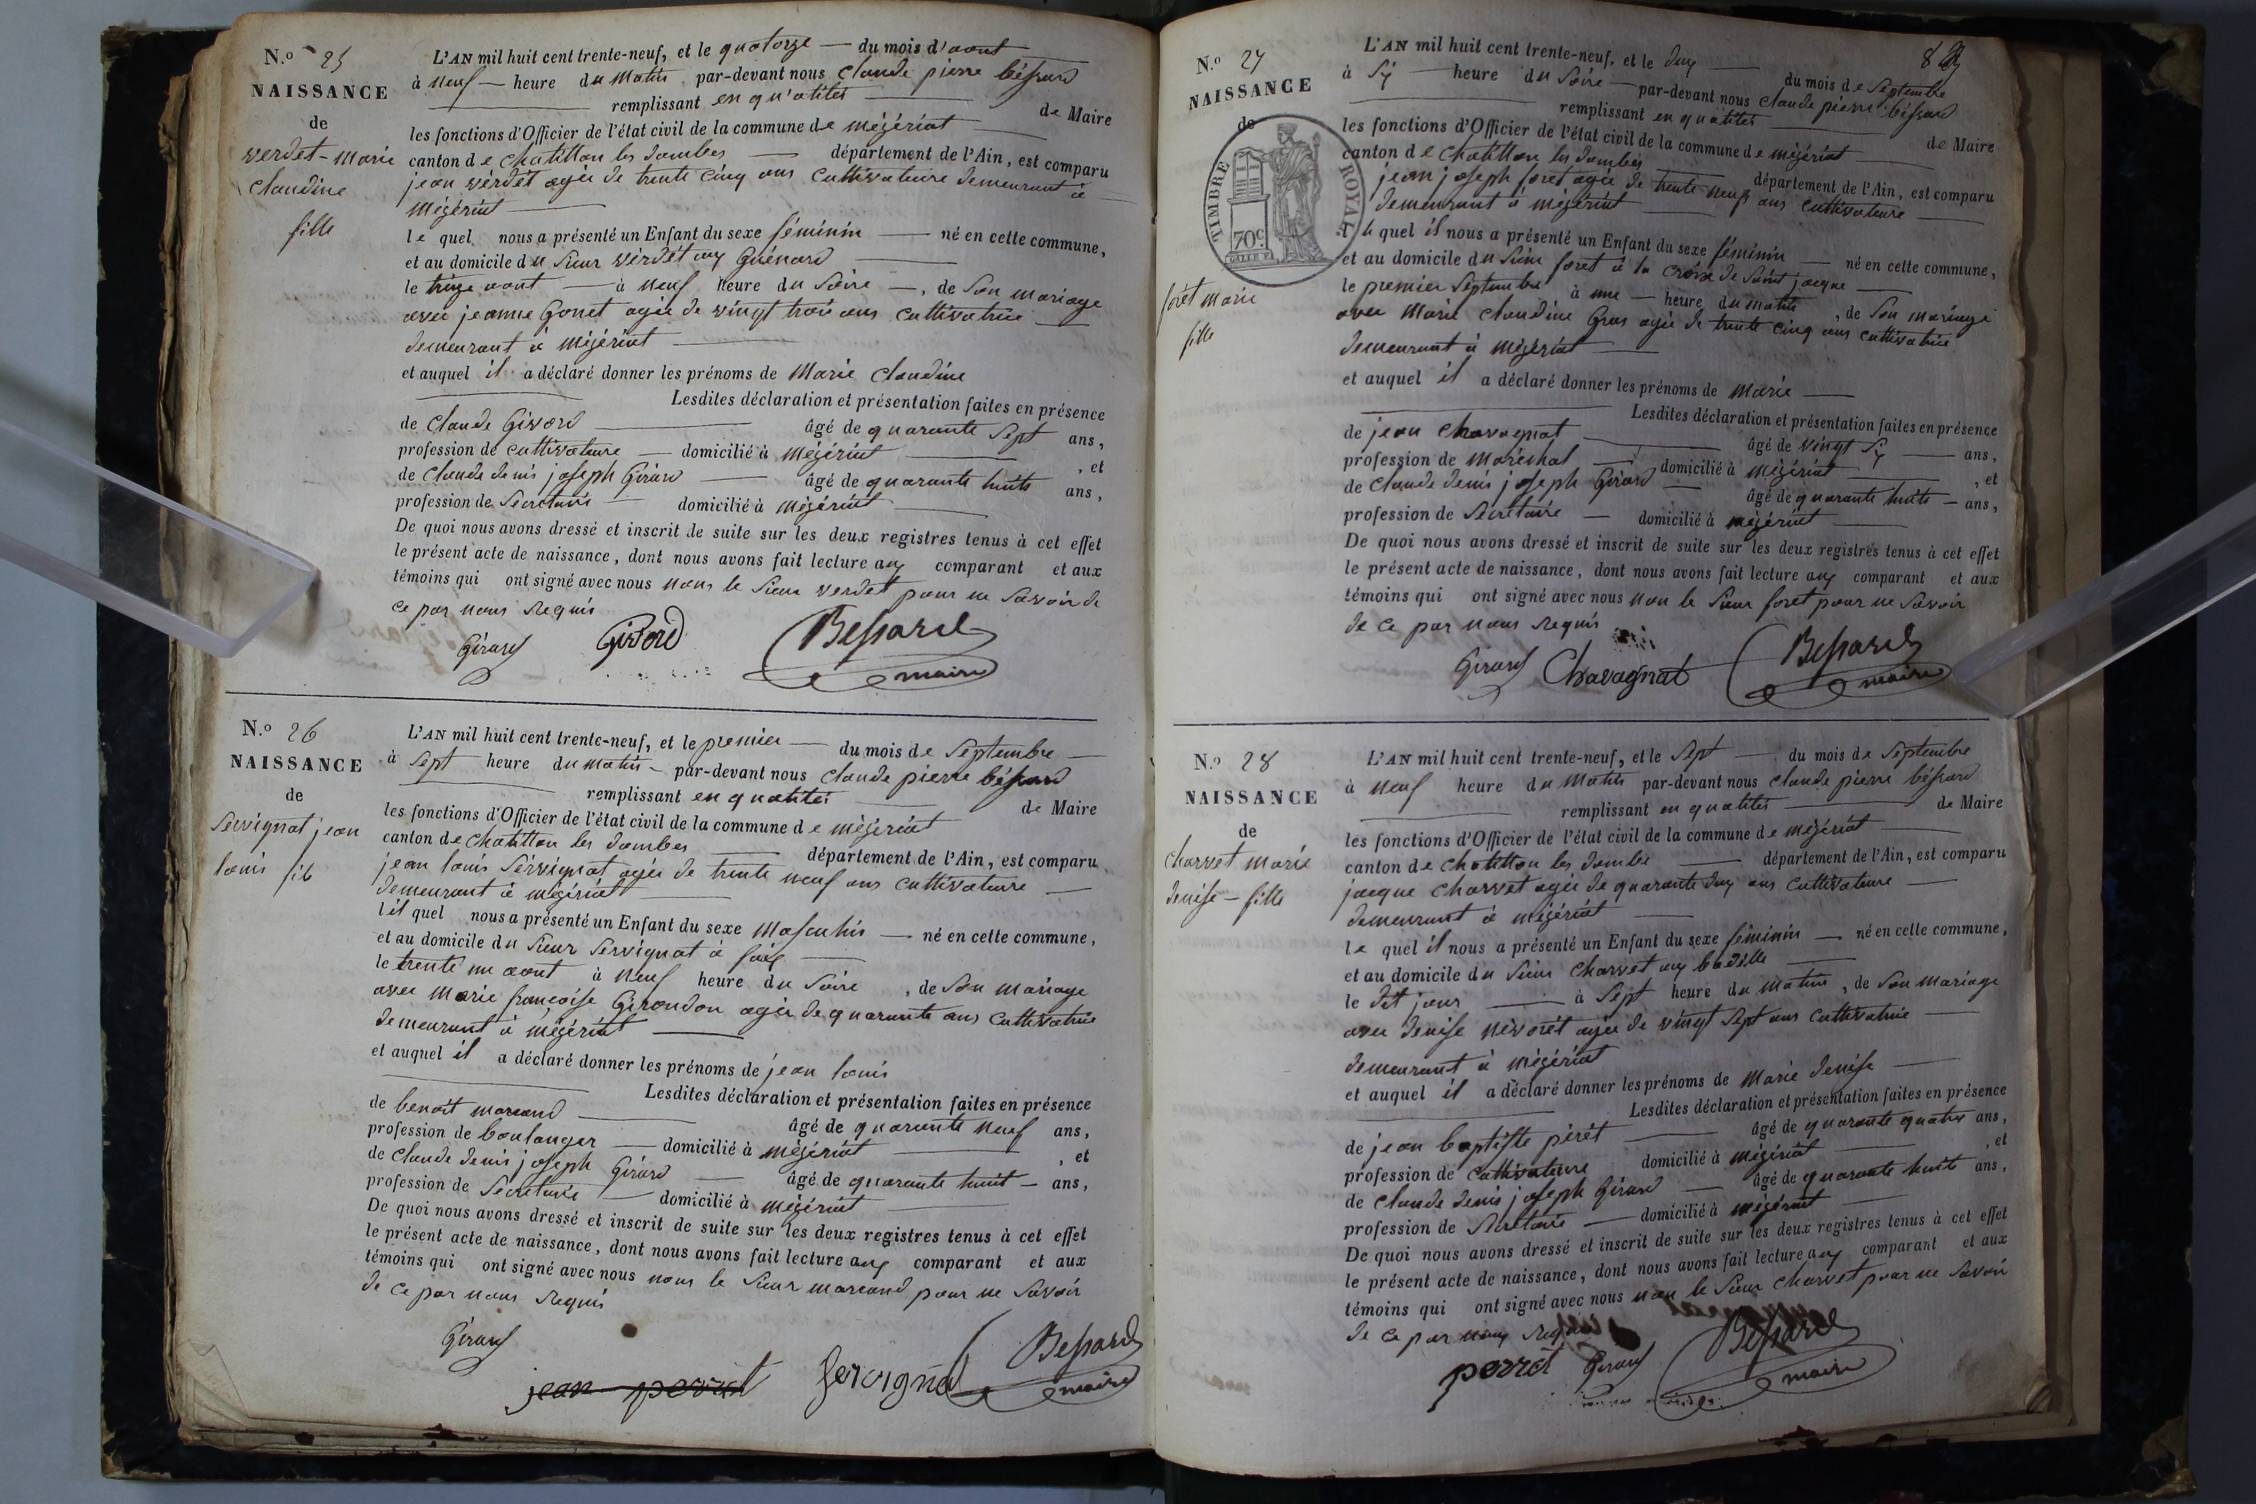 N.o 25
NAISSANCE
de
verdet-marie
claudine
fille
L'AN mil huit cent trente-neuf, et le quatorze — du mois d'aout
à neuf — heure du matin par-devant nous claude pierre béssard
remplissant en qu'alités de Maire
les fonctions d'Officier de l'état civil de la commune de mézériat
canton de chatillon les dombes — département de l'Ain, est comparu
jean verdet agée de trente cinq ans cultivateure demeurant à
mézériat
le quel nous a présenté un Enfant du sexe féminin — né en cette commune,
et au domicile du sieur verdet aux Guénard
le treize aout — à neuf heure du soire —, de son mariage
avec jeanne Gonet agée de vingt trois ans cultivatrice
demeurant à mézériat
et auquel il a déclaré donner les prénoms de Marie claudine
Lesdites déclaration et présentation faites en présence
de claude Givord âgé de quarante sept ans,
profession de cultivateure — domicilié à mézériat , et
de claude denis joseph Girard âgé de quarante huits ans,
profession de secretaire domicilié à mézériat
De quoi nous avons dressé et inscrit de suite sur les deux registres tenus à cet effet
le présent acte de naissance, dont nous avons fait lecture aux comparant et aux
témoins qui ont signé avec nous nons le sieur verdet pour ne savoir de
ce par nous requis
Girard Givord Bessard
maire
N.o 26
NAISSANCE
de
servignat jean
louis fils
L'AN mil huit cent trente-neuf, et le premier — du mois de septembre
à sept heure du matin — par-devant nous claude pierre béssard
remplissant en qualités de Maire
les fonctions d'Officier de l'état civil de la commune de mézériat
canton de chatillon les dombes département de l'Ain, est comparu
jean louis servignat agée de trente neuf ans cultivateure
demeurant à mézériat
lil quel nous a présenté un Enfant du sexe masculin — né en cette commune,
et au domicile du sieur servignat à
le trente un aout à neuf heure du soire , de son mariage
avec marie françoise Girondon agée de quarante ans cultivatrice
demeurant à mézériat
et auquel il a déclaré donner les prénoms de jean louis
Lesdites déclaration et présentation faites en présence
de benoit morand âgé de quarante neuf ans,
profession de boulanger — domicilié à mézériat , et
de claude denis joseph Girard âgé de quarante huit — ans,
profession de secretaire — domicilié à mézériat
De quoi nous avons dressé et inscrit de suite sur les deux registres tenus à cet effet
le présent acte de naissance, dont nous avons fait lecture aux comparant et aux
témoins qui ont signé avec nous nons le sieur morand pour ne savoir
de ce par nous requis
Girard
jean perret servignat Bessard
maire
8
N.o 27
NAISSANCE
de
TIMBRE ROYAL
70c
forêt marie
fille
L'AN mil huit cent trente-neuf, et le dux du mois de septembre
à six — heure du soire par-devant nous claude pierre béssard
remplissant en qualités de Maire
les fonctions d'Officier de l'état civil de la commune de mézériat
canton de chatillon les dombes département de l'Ain, est comparu
jean joseph foret agée de trente neuf ans cultivateure
demeurant à mézériat
le quel il nous a présenté un Enfant du sexe féminin — né en cette commune,
et au domicile du sieur foret à la croix de saint jacque
le premier septembre à une — heure du matin , de son mariage
avec Marie claudine Gras agée de trente cinq ans cultivatrice
demeurant à mézériat
et auquel il a déclaré donner les prénoms de marie
Lesdites déclaration et présentation faites en présence
de jean chavagnat âgé de vingt six ans,
profession de maréchal domicilié à mézériat , et
de claude denis joseph Girard âgé de quarante huits — ans,
profession de secrétaire — domicilié à mézériat
De quoi nous avons dressé et inscrit de suite sur les deux registres tenus à cet effet
le présent acte de naissance, dont nous avons fait lecture aux comparant et aux
témoins qui ont signé avec nous non le sieur foret pour ne savoir
de ce par nous requis
Girard Chavagnat Bessard
maire
N.o 28
NAISSANCE
de
charvet marie
denise — fille
L'AN mil huit cent trente-neuf, et le sept du mois de septembre
à neuf heure du matin par-devant nous claude pierre béssard
remplissant en qualités de Maire
les fonctions d'Officier de l'état civil de la commune de mézériat
canton de chatillon les dombe département de l'Ain, est comparu
jacque charvet agée de quarante dux ans cultivateure
demeurant à mézériat
le quel il nous a présenté un Enfant du sexe féminin — né en cette commune,
et au domicile du sieur charvet aux
le dit jour à sept heure du matin , de son mariage
avec denise nevorêt agée de vingt sept ans cultivatrice
demeurant à mézériat
et auquel il a déclaré donner les prénoms de marie denise
Lesdites déclaration et présentation faites en présence
de jean baptiste pérét âgé de quarante quatre ans,
profession de cultivateure domicilié à mézériat , et
de claude denis joseph Girard âgé de quarante huit ans,
profession de secretaire — domicilié à mézériat
De quoi nous avons dressé et inscrit de suite sur les deux registres tenus à cet effet
le présent acte de naissance, dont nous avons fait lecture aux comparant et aux
témoins qui ont signé avec nous non le sieur charvet pour ne savoir
de ce par nous requis
perret Girard Bessard
maire